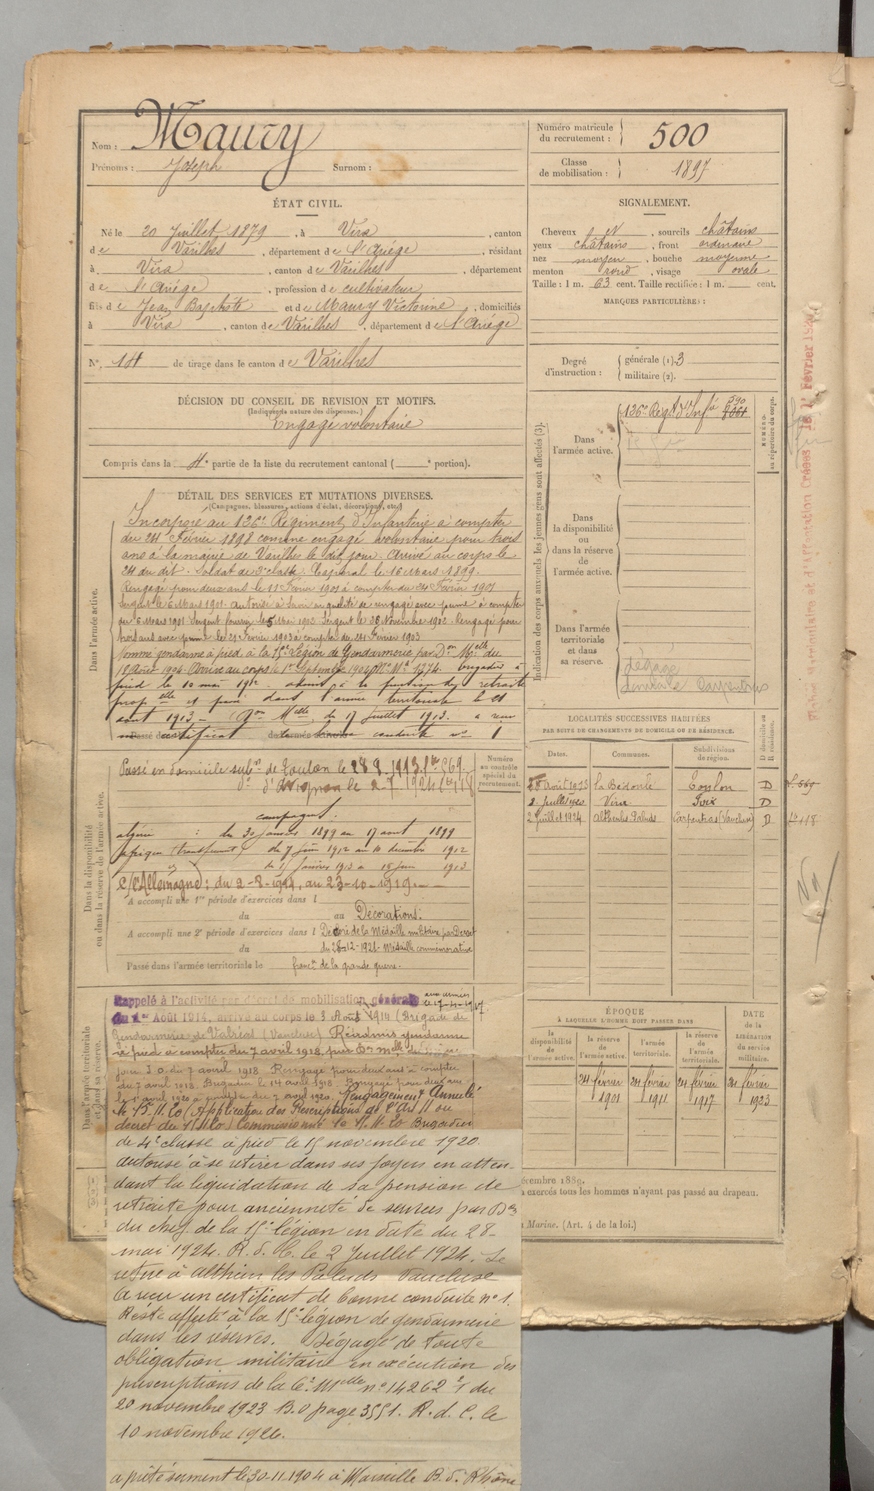 Nom : Maury
Prénoms : Joseph Surnom :
Numéro matricule
du recrutement : 500
Classe
de mobilisation : 1897
ÉTAT CIVIL.
Né le 20 Juillet 1879, à Vira, canton
de Varilhes, département de l'Ariége, résidant
à Vira, canton de Varilhes, département
de l'Ariége, profession de cultivateur
fils de Jean Baptiste et de Maury Victorine, domiciliés
à Vira, canton de Varilhes, département de l'Ariége
N° 14 de tirage dans le canton de Varilhes
SIGNALEMENT.
Cheveux, sourcils châtains
yeux châtains, front ordinaire
nez moyen, bouche moyenne
menton rond, visage ovale
Taille : 1 m. 63 cent. Taille rectifiée : 1 m. cent.
MARQUES PARTICULIÈRES :
Degré
d'instruction : générale (1). 3
militaire (2).
DÉCISION DU CONSEIL DE REVISION ET MOTIFS.
(Indiquer la nature des dispenses.)
Engagé volontaire
Compris dans la 4e partie de la liste du recrutement cantonal ( e portion).
DÉTAIL DES SERVICES ET MUTATIONS DIVERSES.
(Campagnes, blessures, actions d'éclat, décorations, etc.)
Dans l'armée active.
Incorporé au 126e Régiment d'Infanterie à compter
du 24 Février 1898 comme engagé volontaire pour trois
ans à la mairie de Varilhes le dit jour. Arrivé au corps le
24 du dit. Soldat de 2e classe. Caporal le 16 Mars 1899.
Rengagé pour deux ans le 11 Février 1901 à compter du 24 Février 1901
Sergent le 6 Mars 1901. Autorisé à servir en qualité de rengagé avec prime à compter
du 6 Mars 1901. Sergent fourrier le 5 Mai 1902. Sergent le Novembre 1902. Rengagé pour
trois ans avec prime le 21 Février 1903 à compter du 24 Février 1903
Nommé gendarme à pied, à la 15e Légion de Gendarmerie par Don Melle du
18 Août 1904. Arrivé au corps le 1er Septembre 1904 No Mle 1274. brigadier à
pied le 10 mai 1912 admis à la pension de retraite
propelle et passé dans l'armée territoriale le 21
aout 1913 (Don Melle du 17 juillet 1913. a reçu
certificat de bonne conduite no 1
Indication des corps auxquels les jeunes gens sont affectés (3).
Dans
l'armée active.
126e Régt d'Infie
NUMÉRO
au répertoire du corps.
Dans
la disponibilité
ou
dans la réserve
de
l'armée active.
Dans l'armée
territoriale
et dans
sa réserve.
Dégagé
domicile Carpentras
Dans la disponibilité
ou dans la réserve de l'armée active.
Numéro
au contrôle
spécial du
recrutement.
Passé en domicile subon de Toulon le 28.8.1913.
do d'Avignon le 2 7 1924
campagnes :
algérie : du 30 janvier 1899 au 17 aout 1899
afrique du 7 juin 1912 au 10 décembre 1912
du 1 janvier 1913 au 16 juin 1913
C/ l'Allemagne : du 2-8-1914, au 23-10-1919.
A accompli une 1re période d'exercices dans l
du au
Décorations :
A accompli une 2e période d'exercices dans l
Décoré de la Médaille militaire par Décret
du 28-12-1921. Médaille commémorative
Passé dans l'armée territoriale le
franç. de la grande guerre.
LOCALITÉS SUCCESSIVES HABITÉES
PAR SUITE DE CHANGEMENTS DE DOMICILE OU DE RÉSIDENCE.
Dates. Communes. Subdivisions
de région. D domicile ou
R résidence.
Août 1913 la Bédoule Toulon D
Vira Foix D
2 juillet 1924 Althen les Paluds Carpentras (Vaucluse) D
Dans l'armée territoriale
et dans sa réserve.
Rappelé à l'activité par décret de mobilisation générale
du 1er Août 1914, arrivé au corps le 3 Août 1914 (Brigade de
Gendarmerie de Valréas (Vaucluse) Réadmis gendarme
à pied à compter du 7 avril 1918, par Don melle du
jour J.O. du 7 avril 1918. Rengagé pour deux ans à compter
du 7 avril 1918. Brigadier le 14 avril 1918. Rengagé pour deux ans
le avril 1920 à compter du 7 avril 1920. Rengagement Annulé
le 15.11.20 (Application des Prescriptions de l'Art 11 du
décret du ) Commissionné le 15.11.20 Brigadier
de 4e classe à pied le 15 novembre 1920.
autorisé à se retirer dans ses foyers en atten-
dant la liquidation de sa pension de
retraite pour ancienneté de services par Don
du chef de la 15e légion en date du 28-
mai 1924. R. d. C. le 2 Juillet 1924. Se
retire à Althen les Paluds Vaucluse
A reçu un certificat de bonne conduite no 1.
Resté affecté à la 15e légion de gendarmerie
dans les réserves. Dégagé de toute
obligation militaire en exécution des
prescriptions de la Ce. Melle no 14262 du
20 novembre 1923 B.O page 3551. R. d. C. le
10 novembre 1926.
a prêté serment le 30-11-1904 à Marseille B. d. Rhône
ÉPOQUE
À LAQUELLE L'HOMME DOIT PASSER DANS
la
disponibilité
de
l'armée active.
la réserve
de
l'armée active.
l'armée
territoriale.
la réserve
de
l'armée
territoriale.
DATE
de la
LIBÉRATION
du service
militaire.
24 février
1901
24 février
1911
24 février
1917
24 février
1923
décembre 1889.
exercés tous les hommes n'ayant pas passé au drapeau.
Marine. (Art. 4 de la loi.)